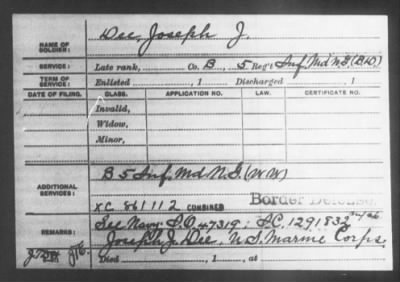 Dee, Joseph J.
NAME OF
SOLDIER:
SERVICE: Late rank, Co. B, 5 Reg't Inf. Md N.G. (B.D.)
TERM OF
SERVICE: Enlisted , 1 Discharged , 1
DATE OF FILING. CLASS. APPLICATION NO. LAW. CERTIFICATE NO.
Invalid,
Widow,
Minor,
B 5 Inf. Md N.G. (WW)
ADDITIONAL
SERVICES: XC 861112 COMBINED Border Defense
See Navy: S.O. 47319; S.C. 1291832
REMARKS: Joseph J. Dee, U.S. Marine Corps.
Died , 1 , at